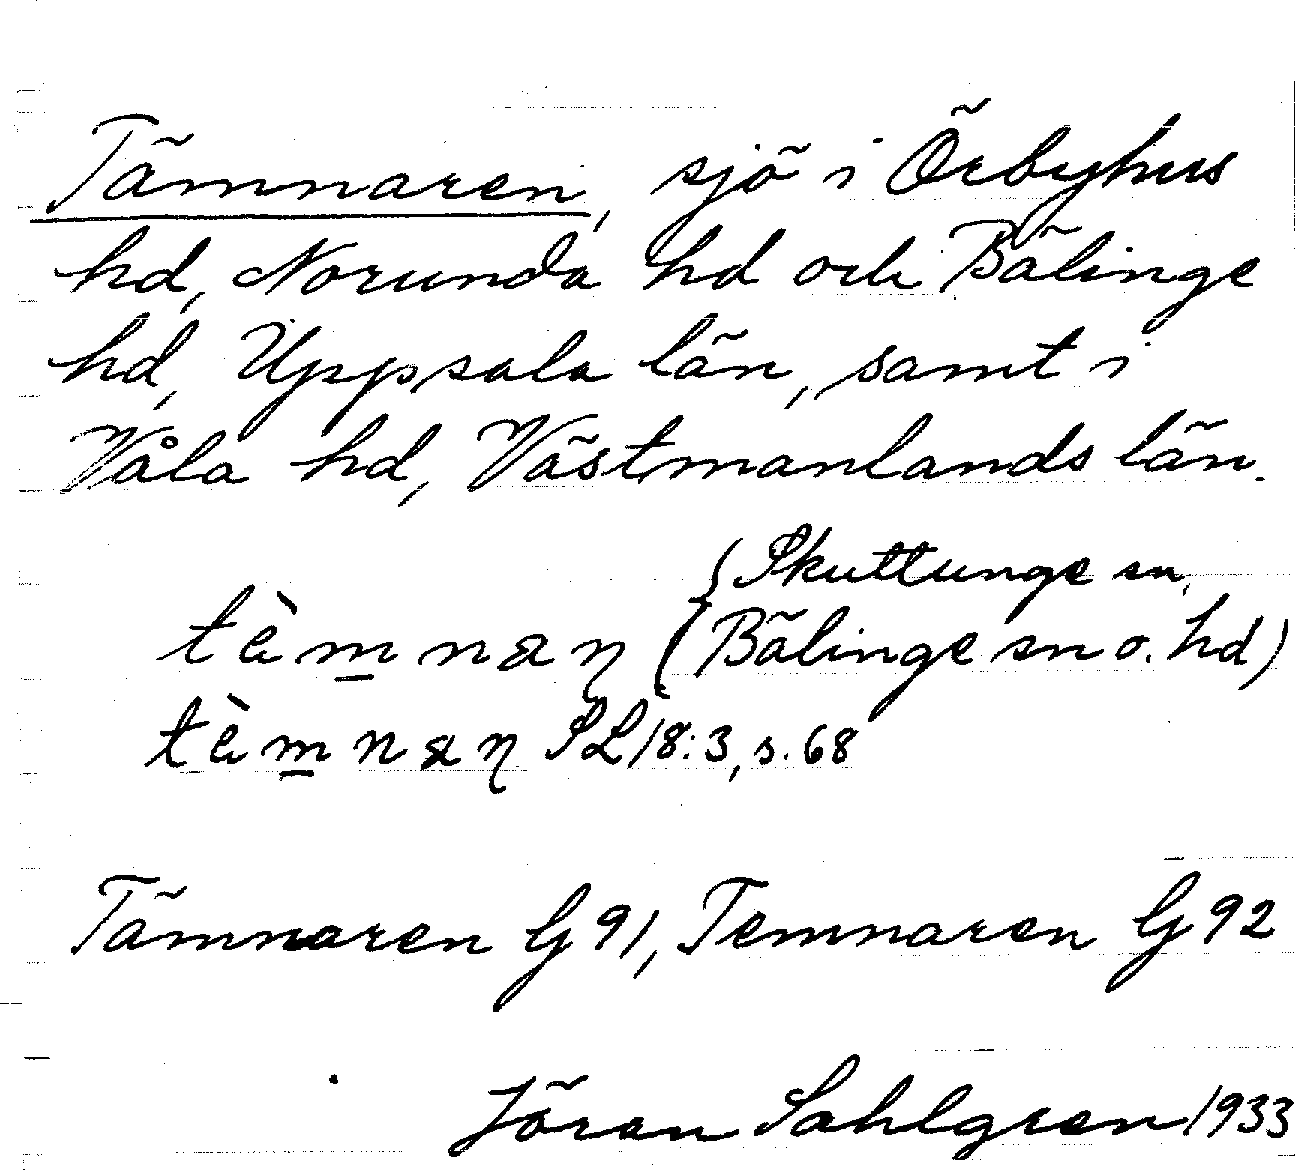 Tämnaren, sjö i Örbyhus
hd, Norunda hd och Bälinge
hd, Uppsala län, samt i
Våla hd, Västmanlands län.
(Skuttunge sn,
tèm̲naꞃ (Bälinge sn o. hd)
tèm̲naꞃ SL 18:3, s. 68
Tämnaren G 91, Temnaren G 92
Jöran Sahlgren 1933